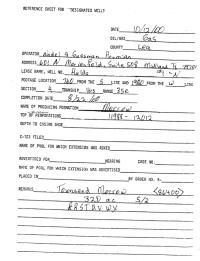 REFERENCE SHEET FOR "DESIGNATED WELL"
DATE 10/12/00
OIL/GAS Gas
COUNTY Lea
OPERATOR Nadel & Gussman Permian
ADDRESS 601 N Marienfeld, Suite 508 Midland Tx 79701
LEASE NAME, WELL NO. #1 - N
FOOTAGE LOCATION FROM THE S LINE AND 1980 FROM THE W LINE
SECTION 4 TOWNSHIP 16S RANGE 35E
COMPLETION DATE 8/22/00
NAME OF PRODUCING FORMATION Morrow
TOP OF PERFORATIONS 11988 - 12012
DEPTH TO CASING SHOE
C-123 FILED
NAME OF POOL FOR WHICH EXTENSION WAS ASKED
ADVERTISED FOR HEARING CASE NO.
NAME OF POOL FOR WHICH EXTENSION WAS ADVERTISED
PLACED IN BY ORDER NO. R-
RESULTS Townsend Morrow <86400>
320 ac S/2
ERSTUVWX